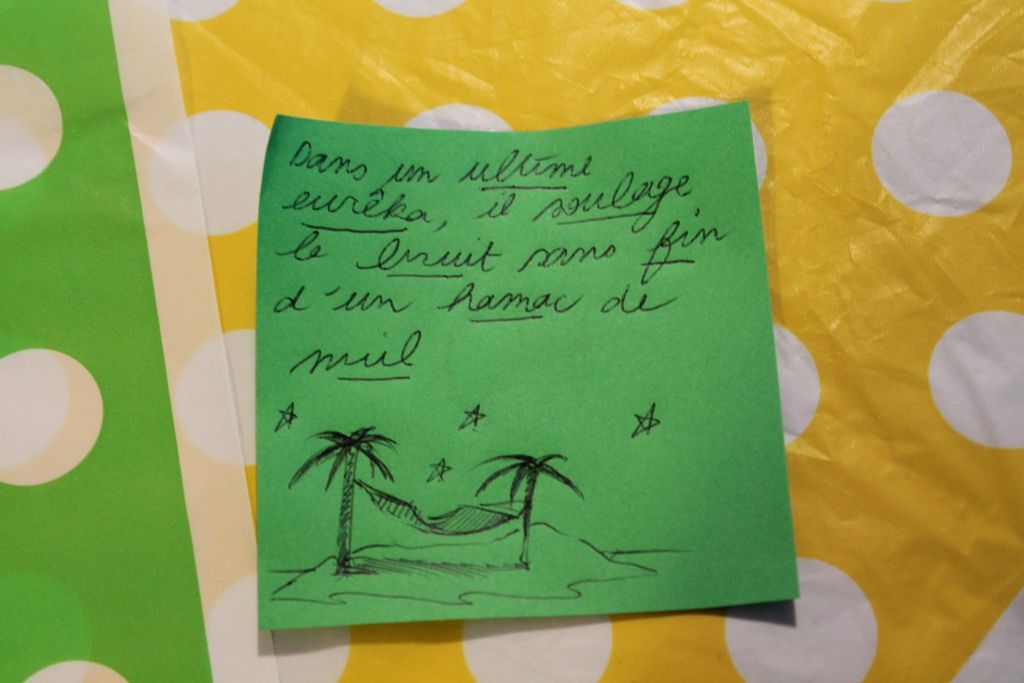 Dans un ultime
eurêka, il soulage
le bruit sans fin
d'un hamac de
mil